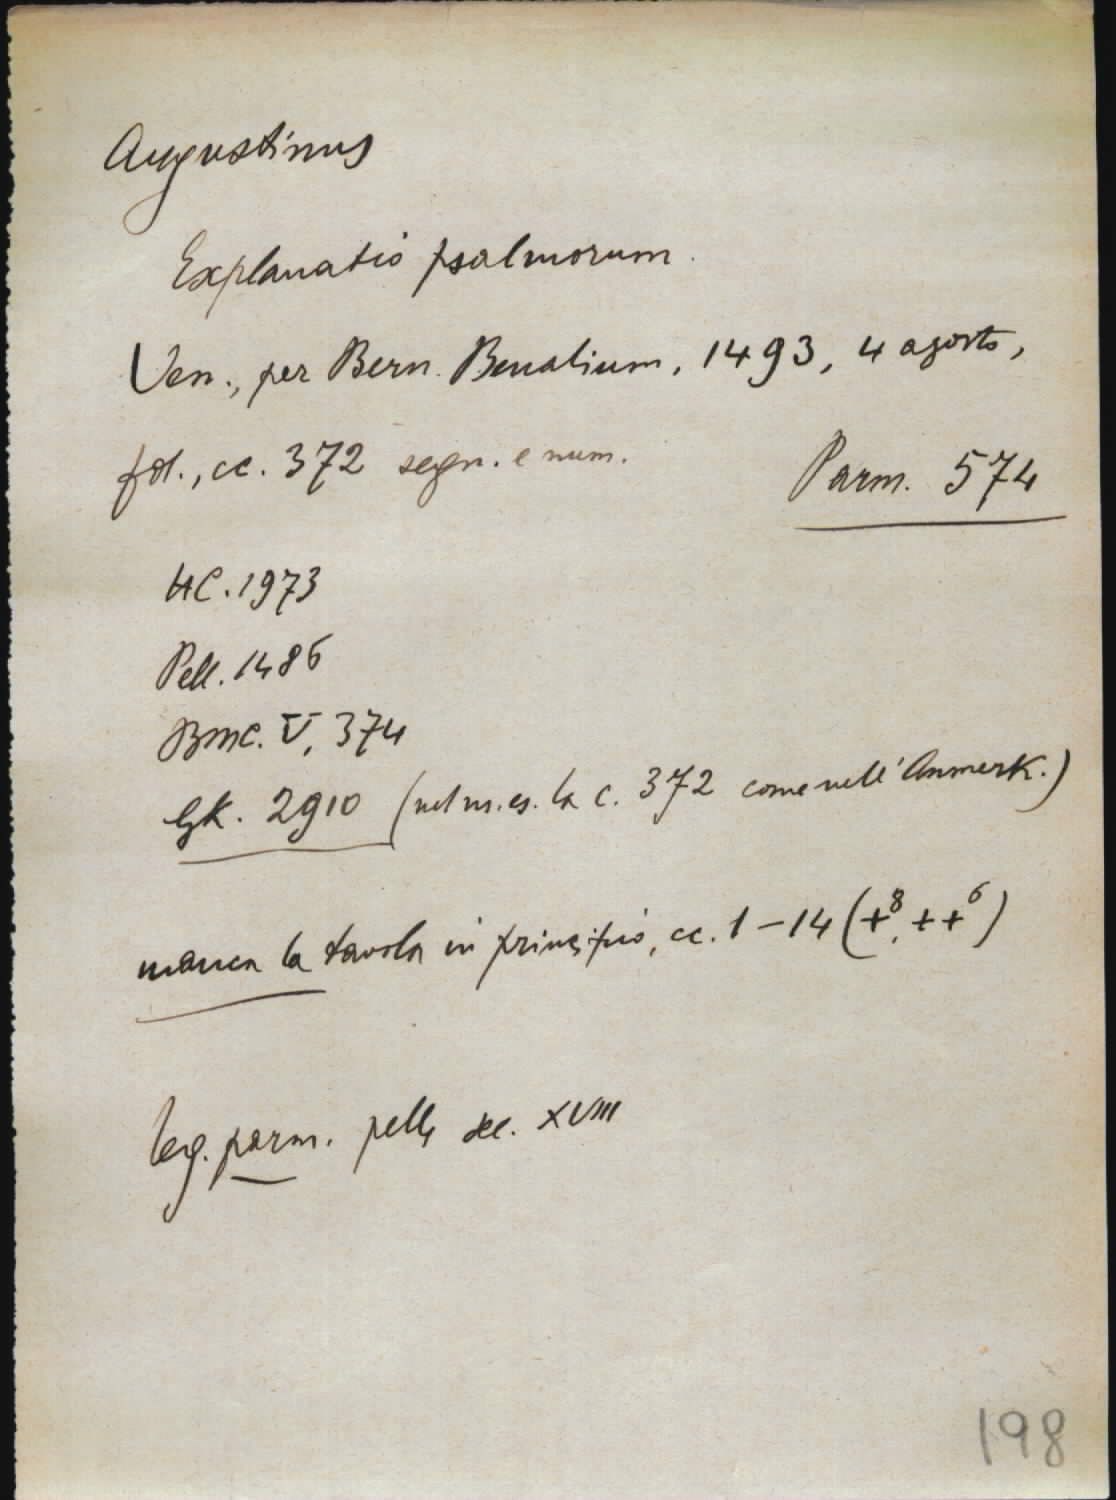 Augustinus
Explanatio psalmorum.
Ven., per Bern. Benalium, 1493, 4 agosto,
fol., cc. 372 segn. e num.
Parm. 574
HC. 1973
Pell. 1486
BMC. V, 374
GK. 2910 (nel ns. es. la c. 372 come nell'Anmerk.)
manca la tavola in principio, cc. 1-14 (+8, ++6)
leg. parm. pelle sec. XVIII
198